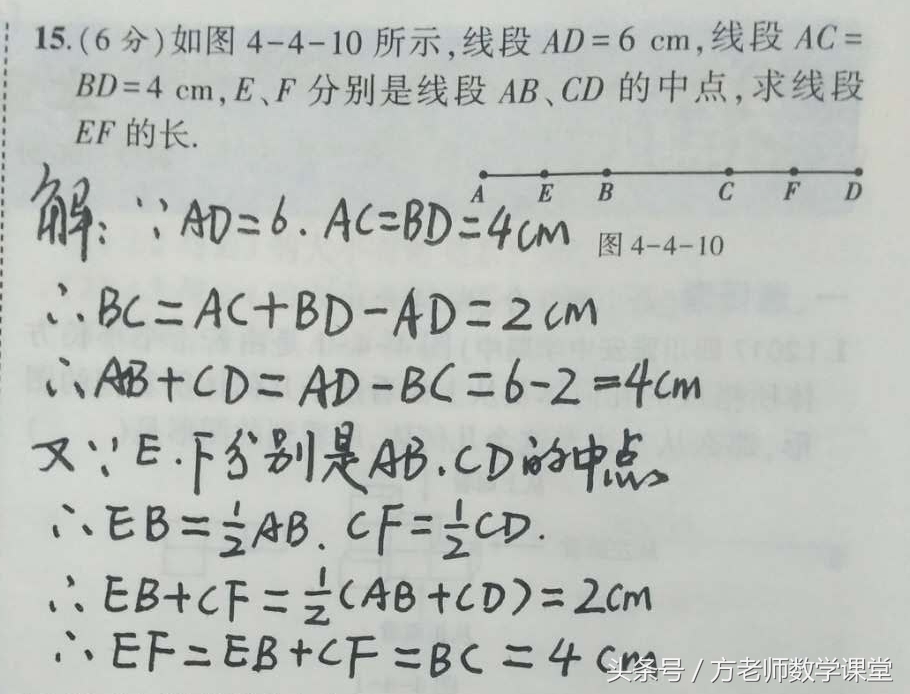 15.(6 分)如图 4-4-10 所示,线段 AD=6 cm,线段 AC=
BD=4 cm,E、F 分别是线段 AB、CD 的中点,求线段
EF 的长.
A E B C F D
图 4-4-10
解:∵AD=6. AC=BD=4cm
∴BC=AC+BD-AD=2cm
∴AB+CD=AD-BC=6-2=4cm
又∵E.F分别是AB.CD的中点
∴EB=1/2AB. CF=1/2CD.
∴EB+CF=1/2(AB+CD)=2cm
∴EF=EB+CF=BC=4cm
头条号 / 方老师数学课堂